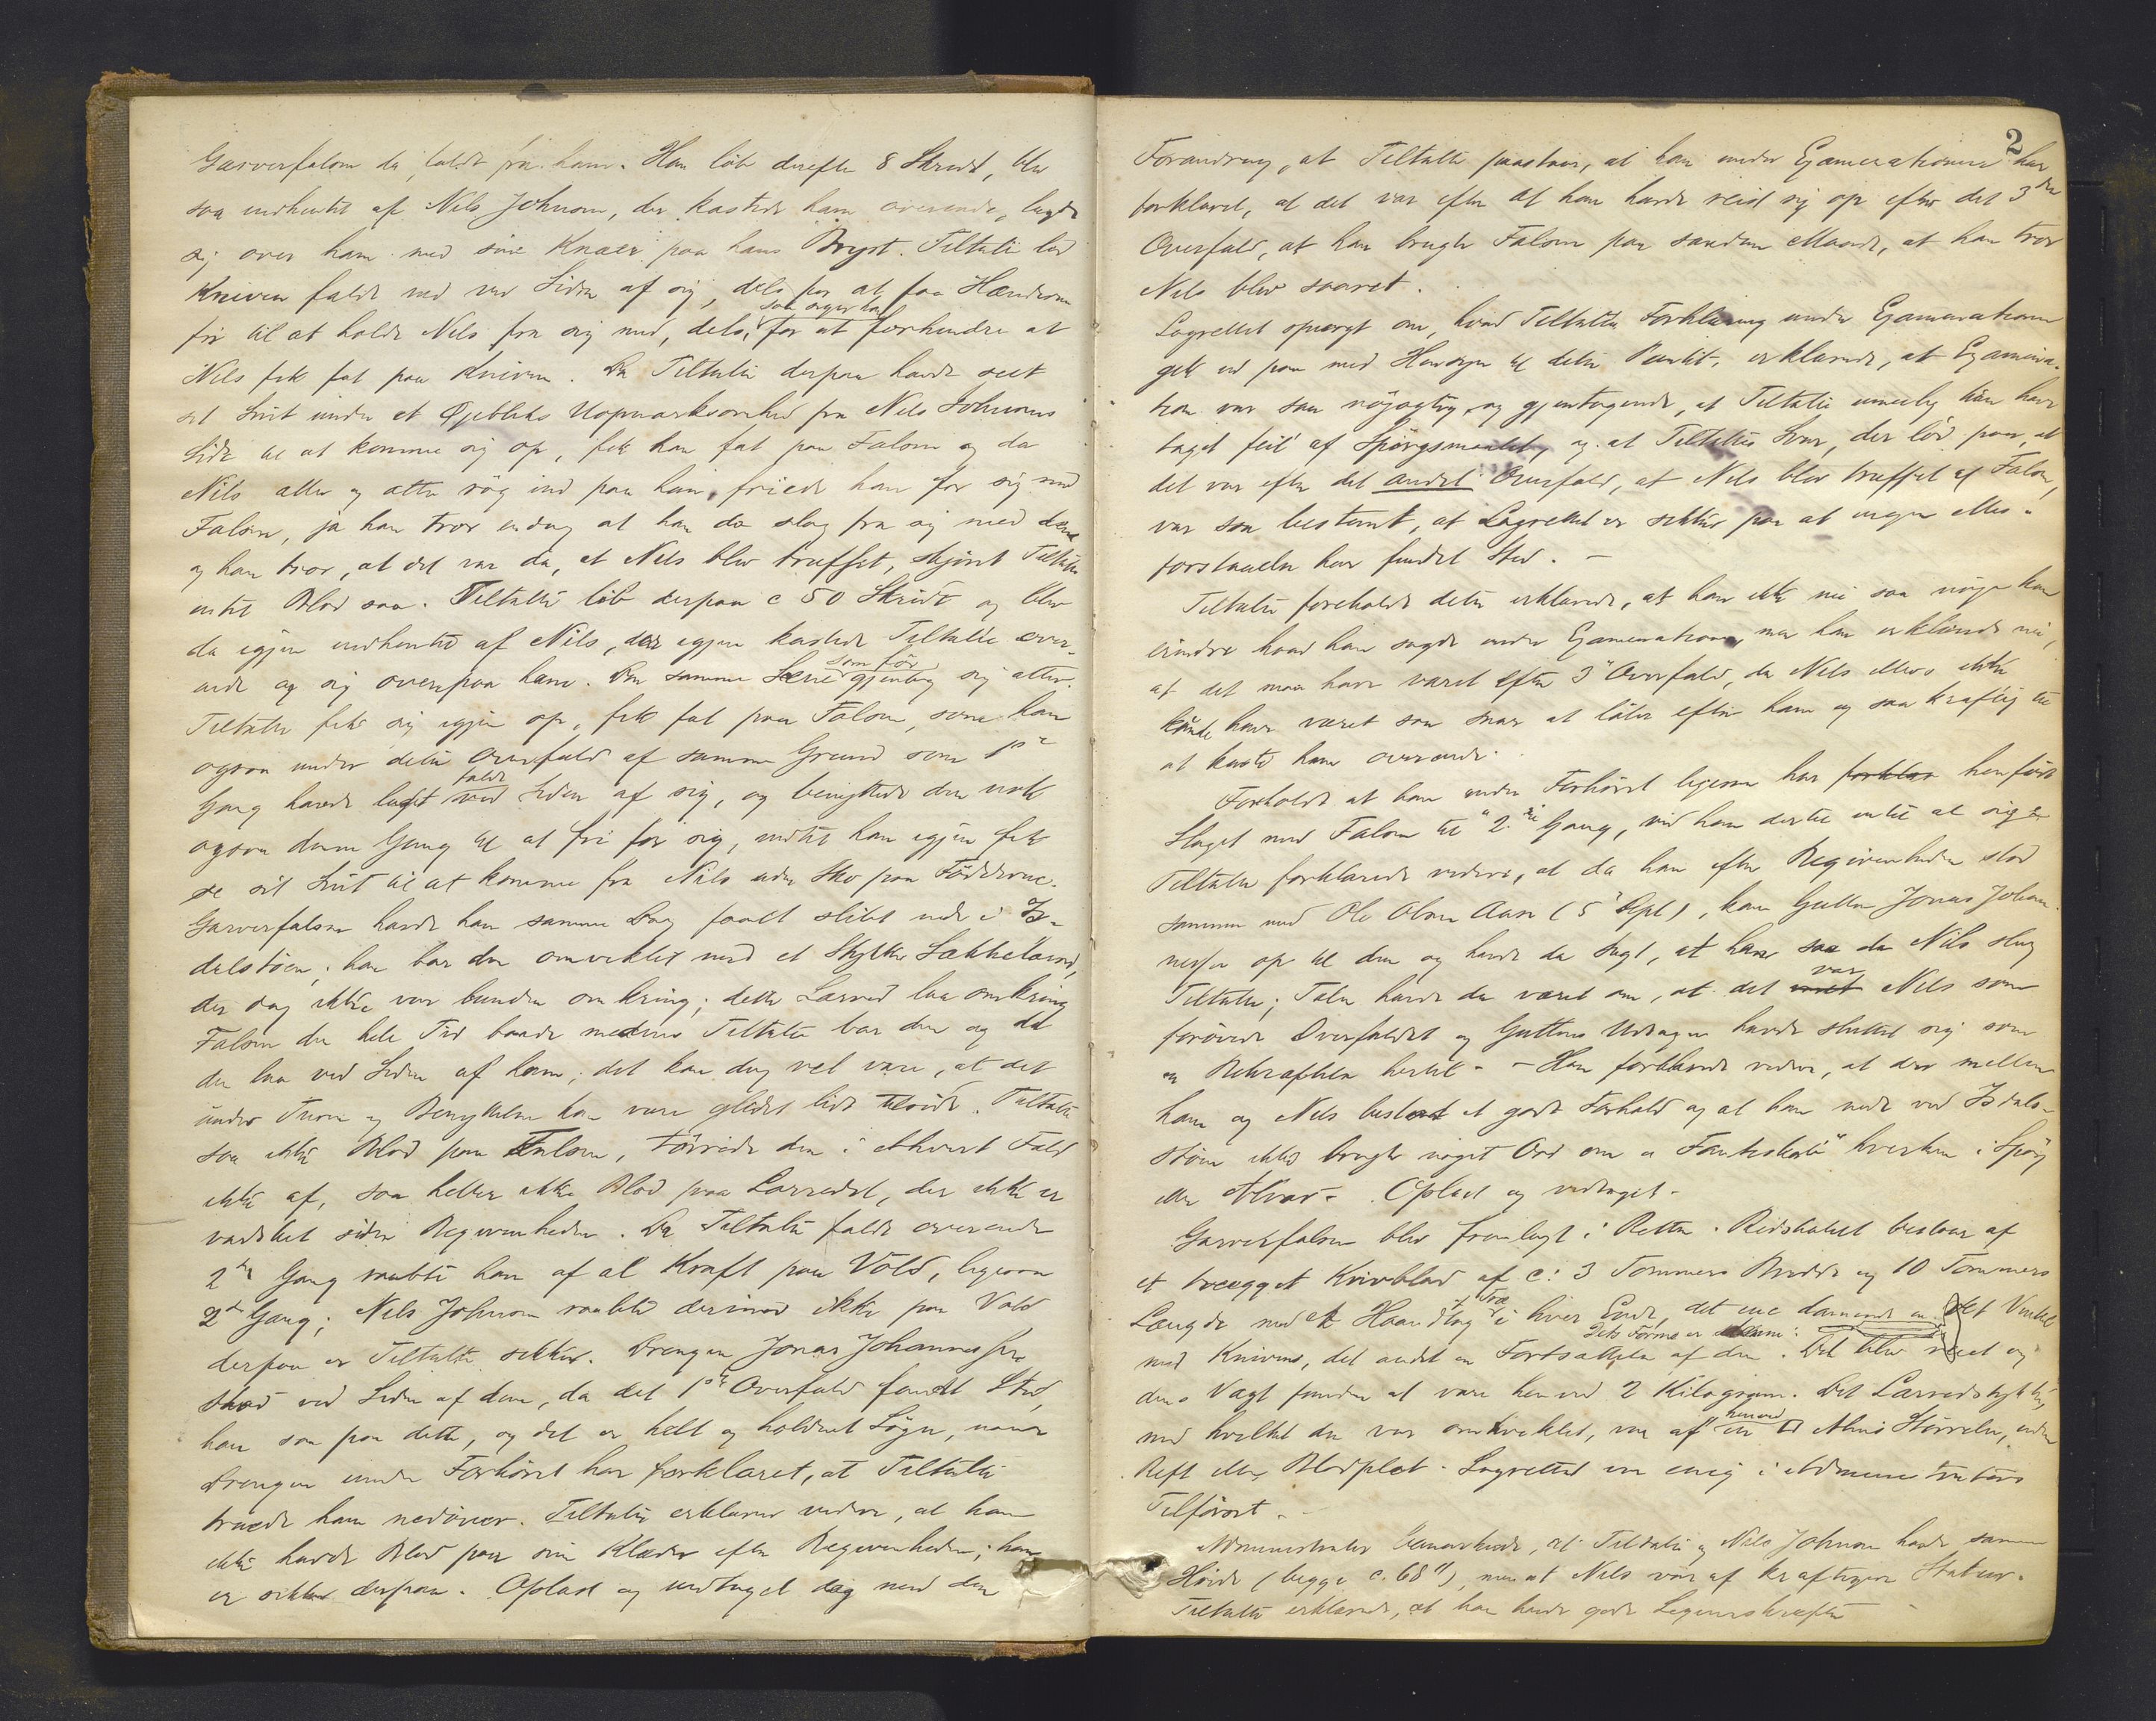 Garverfalsen da faldt fra ham. Han løb derefter 8 Skridt, blev
saa indhentet af Nils Johnson, der kastede ham overende, lagde
sig over ham med sine Knæer paa hans Bryst. Tiltalte lod
Kniven falde ned ved Siden af sig, dels for at faa Hænderne
fri til at holde Nils fra sig med, dels, saa siger han, for at forhindre at
Nils fik fat paa Kniven. Da Tiltalte derpaa havde seet
sit Snit under et Øjebliks Uopmærksomhed fra Nils Johnsons
Side til at komme sig op, fik han fat paa Falsen og da
Nils atter og atter røg ind paa ham, friede han for sig med
Falsen, ja han tror endog at han da slog fra sig med den
og han tror, at det var da, at Nils blev truffet, skjønt Tiltalte
intet Blod saa. Tiltalte løb derpaa c 50 Skridt og blev
da igjen indhentet af Nils, der igjen kastede Tiltalte over-
ende og sig ovenpaa ham. Den samme Scene som før gjentog sig atter.
Tiltalte fik sig igjen op, fik fat paa Falsen, som han
ogsaa under dette Overfald af samme Grund som 1ste
Gang havde ladet falde ved Siden af sig, og benyttede den nok
ogsaa denne Gang til at fri for sig, indtil han igjen fik
se sit Snit til at komme fra Nils uden Sko paa Fødderne.
Garverfalsen havde han samme Dag faaet slibt nede i Is-
dalstøen; han bar den omviklet med et Stykke Sækkelærred,
der dog ikke var bunden omkring; dette Lærred laa omkring
Falsen den hele Tid baade medens Tiltalte bar den og da
den laa ved Siden af ham; det kan dog vel være, at det
under Turen og Benyttelsen kan være glidet lidt tilside. Tiltalte
saa ikke Blod paa Falsen, tørrede den i ethvert Fald
ikke af, saa heller ikke Blod paa Lærredet, der ikke er
vadsket siden Begivenheden. Da Tiltalte faldt overende
2den Gang raabte han af al Kraft paa Vold, ligesaa
3die Gang; Nils Johnson raabte derimod ikke paa Vold
derpaa er Tiltalte sikker. Drengen Jonas Johannessen
stod ved Siden af dem, da det 1ste Overfald fandt Sted,
han saa paa dette, og det er helt og holdent Løgn, naar
Drengen under Forhøret har forklaret, at Tiltalte
truede ham nedover. Tiltalte erklærer videre, at han
ikke havde Blod paa sine Klæder efter Begivenheden; han
er sikker derpaa. Oplæst og vedtaget dog med den
2
Forandring, at Tiltalte paastaar, at han under Examinationen har
forklaret, at det var efter at han havde reist sig op efter det 3die
Overfald, at han brugte Falsen paa saadan Maade, at han tror
Nils blev saaret.
Lagrettet spurgt om, hvad Tiltaltes Forklaring under Examinationen
gik ud paa med Hensyn til dette Punkt, erklærede, at Examina-
tion var saa nøjagtig og gjentagende, at Tiltalte umulig kan have
taget feil af Spørgsmaalet, og at Tiltaltes Svar, der lød paa, at
det var efter det andet Overfald, at Nils blev truffet af Falsen,
var saa bestemt, at Lagrettet er sikker paa at ingen Mis-
forstaaelse har fundet Sted. —
Tiltalte foreholdt dette erklærede, at han ikke nu saa nøje kan
erindre hvad han sagde under Examinationen, men han erklærede nu,
at det maa have været efter 3die Overfald, da Nils ellers ikke
kunde have været saa snar at løbe efter ham og saa kraftig til
at kaste ham overende.
Foreholdt at han under Forhøret ligesaa har forklar henført
Slaget med Falsen til "2den Gang, ved han dertil intet at sige.
Tiltalte forklarede videre, at da han efter Begivenheden stod
sammen med Ole Olsen Aase (5te Dept), kom Gutten Jonas Johan-
nessen op til dem og havde da sagt, at han saa da Nils slog
Tiltalte; Talen havde da været om, at det været var Nils som
forøvede Overfaldet og Guttens Udsagn havde sluttet sig som
en Bekræftelse hertil. — Han forklarede videre, at der mellem
ham og Nils bestod et godt Forhold og at han nede ved Isdals-
støen ikke brugte noget Ord om en "Fantekat" hverken i Spøg
eller Alvor. Oplæst og vedtaget.
Garverfalsen blev fremlagt i Retten. Redskabet bestaar af
et tveegget Knivblad af c: 3 Tommers Bredde og 10 Tommers
Længde med et Haandtag af Træ i hver Ende, det ene dannende en ret Vinkel
med Kniven, det andet en Fortsættelse af den. Dets Form er denne: Det blev veiet og
dens Vægt funden at være henved 2 Kilogram. Det Lærredstykke,
med hvilket den var omviklet, var af henved en 1/2 Alens Størrelse, uden
Rift eller Blodplet. Lagrettet var enig i Administrators
Tilførsel.
Administrator bemærkede, at Tiltalte og Nils Johnson havde samme
Høide (begge c. 68"), men at Nils var af kraftigere Statur.
Tiltalte erklærede, at han havde gode Legemskræfter